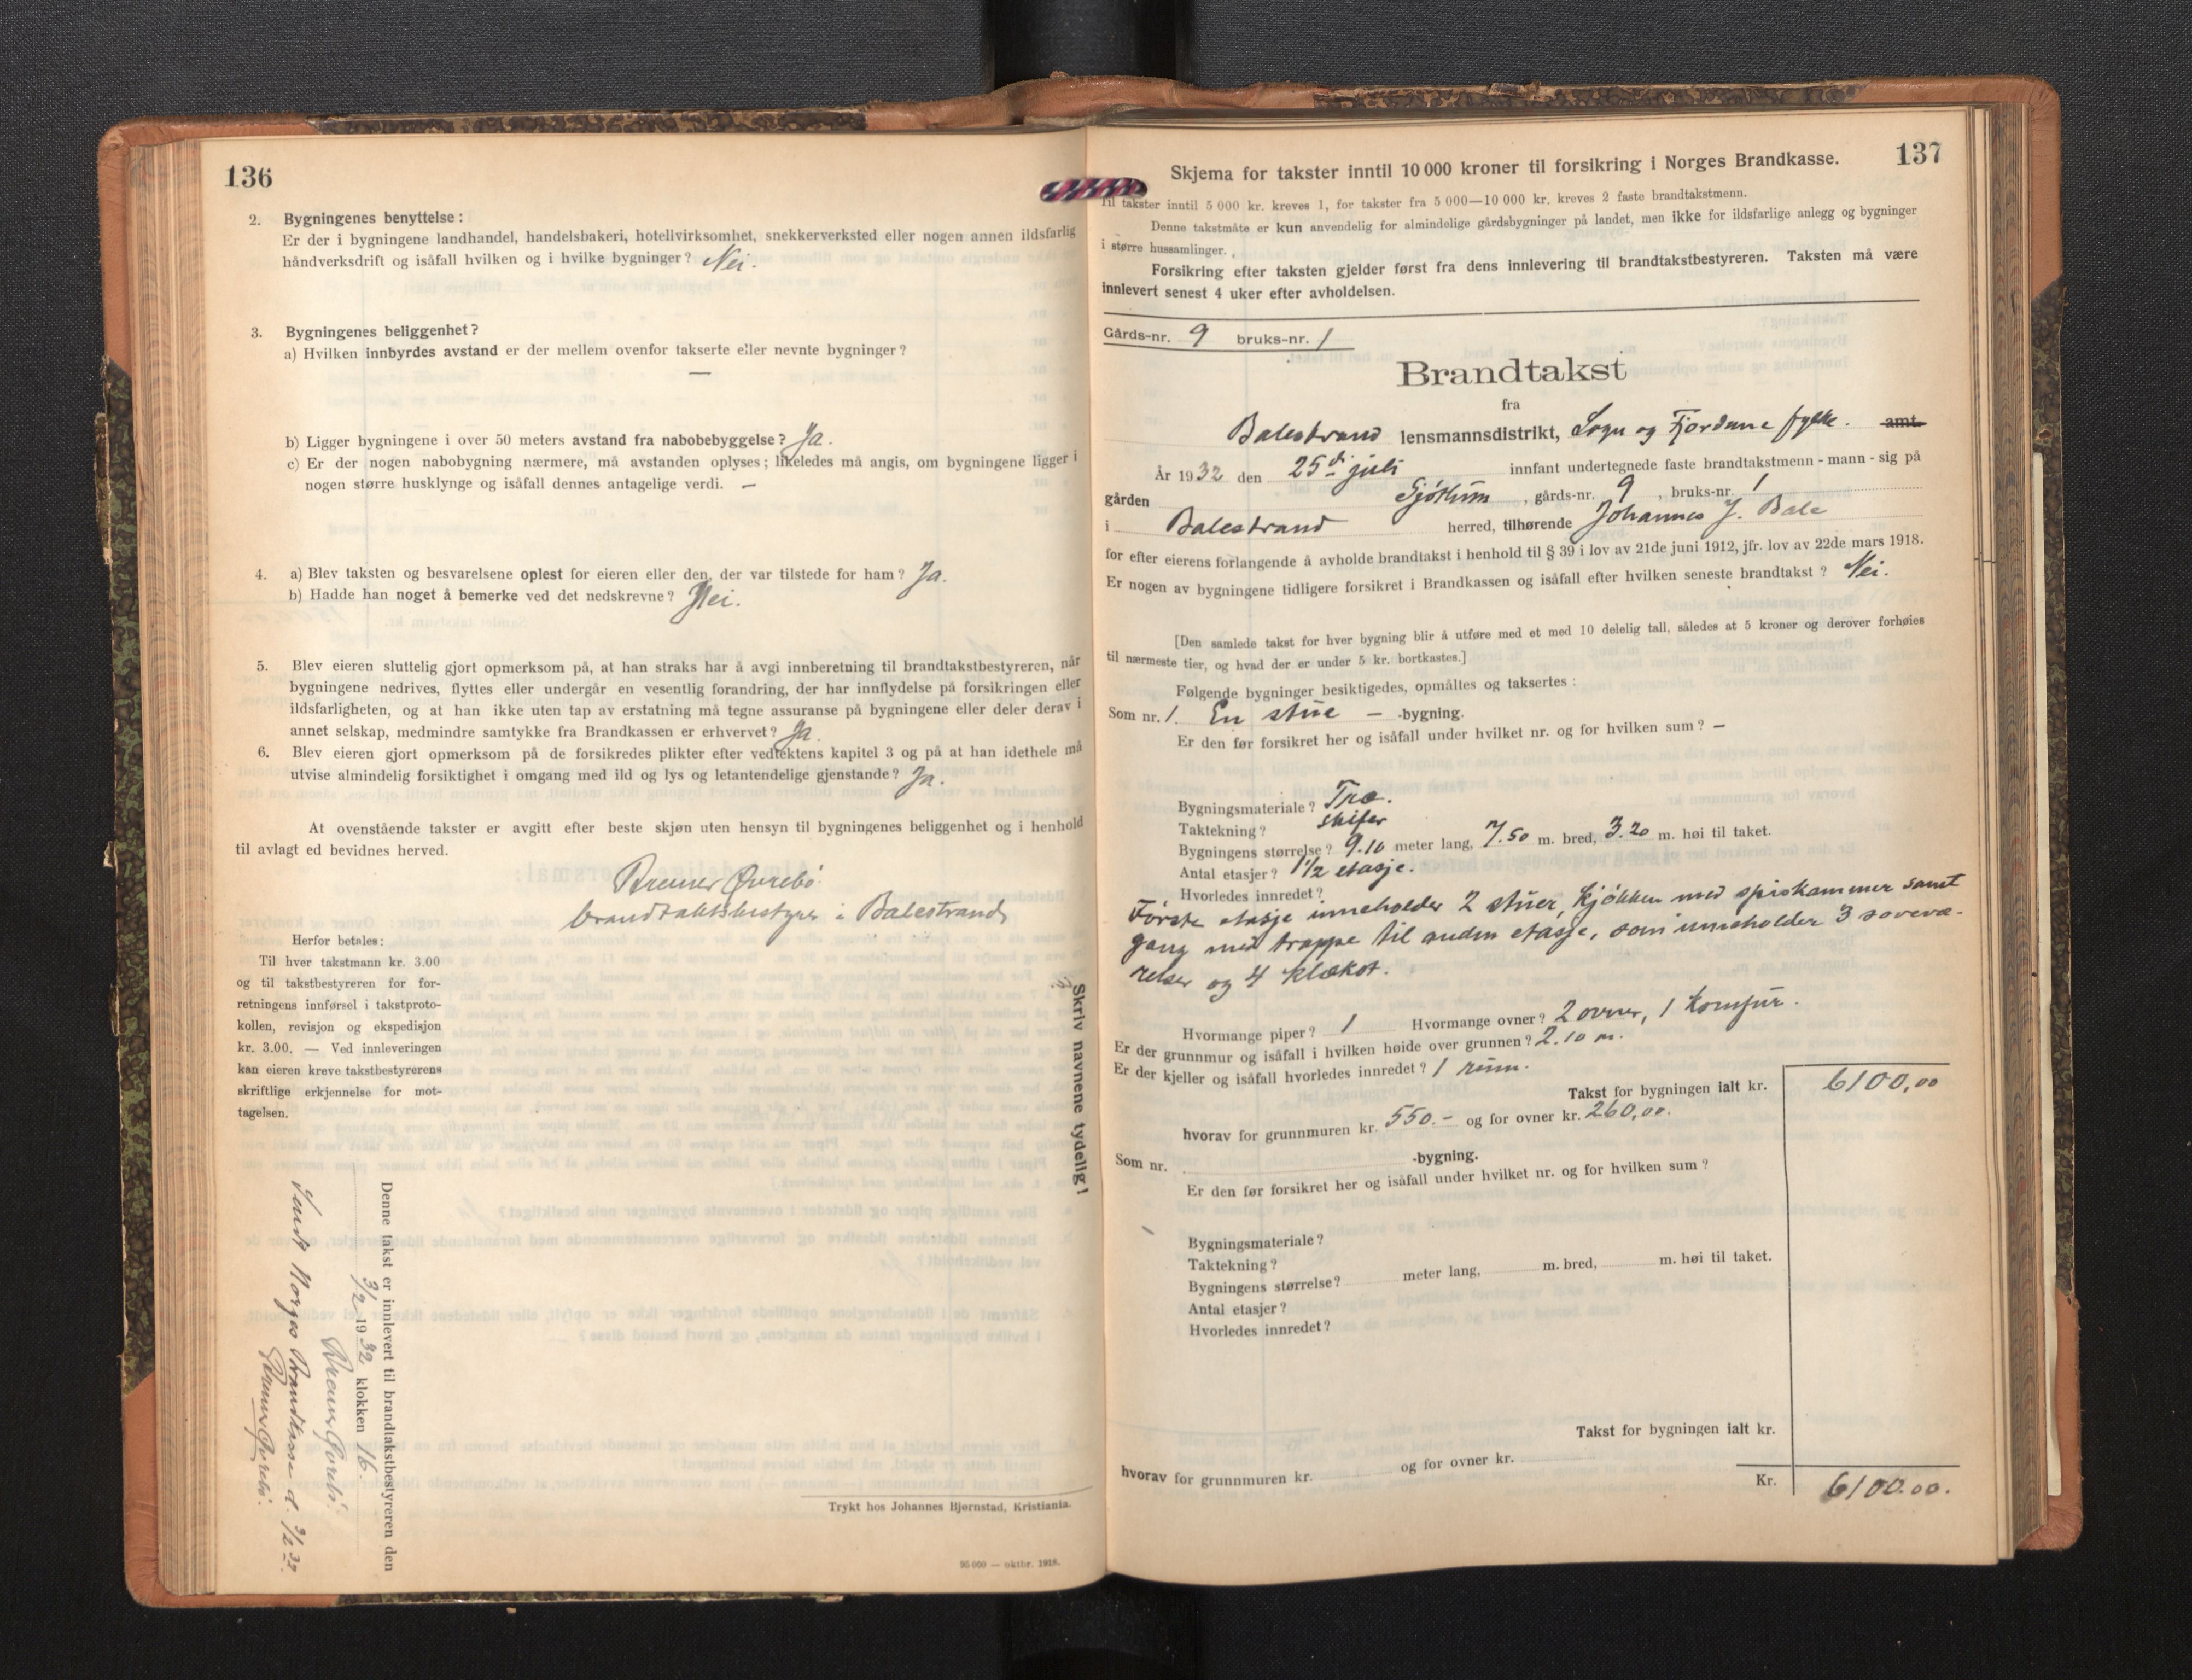 136
2. Bygningenes benyttelse:
Er der i bygningene landhandel, handelsbakeri, hotellvirksomhet, snekkerverksted eller nogen annen ildsfarlig
håndverksdrift og isåfall hvilken og i hvilke bygninger? Nei.
3. Bygningenes beliggenhet?
a) Hvilken innbyrdes avstand er der mellem ovenfor takserte eller nevnte bygninger?
—
b) Ligger bygningene i over 50 meters avstand fra nabobebyggelse? Ja.
c) Er der nogen nabobygning nærmere, må avstanden oplyses; likeledes må angis, om bygningene ligger i
nogen større husklynge og isåfall dennes antagelige verdi. —
4. a) Blev taksten og besvarelsene oplest for eieren eller den, der var tilstede for ham? Ja.
b) Hadde han noget å bemerke ved det nedskrevne? Nei.
5. Blev eieren sluttelig gjort opmerksom på, at han straks har å avgi innberetning til brandtakstbestyreren, når
bygningene nedrives, flyttes eller undergår en vesentlig forandring, der har innflydelse på forsikringen eller
ildsfarligheten, og at han ikke uten tap av erstatning må tegne assuranse på bygningene eller deler derav i
annet selskap, medmindre samtykke fra Brandkassen er erhvervet? Ja
6. Blev eieren gjort opmerksom på de forsikredes plikter efter vedtektens kapitel 3 og på at han idethele må
utvise almindelig forsiktighet i omgang med ild og lys og letantendelige gjenstande? Ja.
At ovenstående takster er avgitt efter beste skjøn uten hensyn til bygningenes beliggenhet og i henhold
til avlagt ed bevidnes herved.
Øvrebø
brandtakstbestyrer i Balestrand
Herfor betales:
Til hver takstmann kr. 3.00
og til takstbestyreren for for-
retningens innførsel i takstproto-
kollen, revisjon og ekspedisjon
kr. 3.00. — Ved innleveringen
kan eieren kreve takstbestyrerens
skriftlige erkjennelse for mot-
tagelsen.
Skriv navnene tydelig!
Denne takst er innlevert til brandtakstbestyreren den
3/2 1932 klokken 16.
Norges Brandkasse d. 3/2 32.
Trykt hos Johannes Bjørnstad, Kristiania.
95 000 — oktbr. 1918.
137
Skjema for takster inntil 10 000 kroner til forsikring i Norges Brandkasse.
Til takster inntil 5 000 kr. kreves 1, for takster fra 5 000—10 000 kr. kreves 2 faste brandtakstmenn.
Denne takstmåte er kun anvendelig for almindelige gårdsbygninger på landet, men ikke for ildsfarlige anlegg og bygninger
i større hussamlinger.
Forsikring efter taksten gjelder først fra dens innlevering til brandtakstbestyreren. Taksten må være
innlevert senest 4 uker efter avholdelsen.
Gårds-nr. 9 bruks-nr. 1
Brandtakst
fra
Balestrand lensmannsdistrikt, Sogn og Fjordane fylke. amt.
År 1932 den 25de juli innfant undertegnede faste brandtakstmenn - mann - sig på
gården Sjøtun, gårds-nr. 9, bruks-nr. 1
i Balestrand herred, tilhørende Johannes J. Bale
for efter eierens forlangende å avholde brandtakst i henhold til § 39 i lov av 21de juni 1912, jfr. lov av 22de mars 1918.
Er nogen av bygningene tidligere forsikret i Brandkassen og isåfall efter hvilken seneste brandtakst? Nei.
[Den samlede takst for hver bygning blir å utføre med et med 10 delelig tall, således at 5 kroner og derover forhøies
til nærmeste tier, og hvad der er under 5 kr. bortkastes.]
Følgende bygninger besiktigedes, opmåltes og taksertes:
Som nr. 1. En stue — -bygning.
Er den før forsikret her og isåfall under hvilket nr. og for hvilken sum? —
Bygningsmateriale? Træ.
Taktekning? skifer
Bygningens størrelse? 9.10 meter lang, 7.50 m. bred, 3.20 m. høi til taket.
Antal etasjer? 1 1/2 etasje.
Hvorledes innredet?
Første etasje inneholder 2 stuer, kjøkken med spiskammer samt
gang med trappe til anden etasje, som inneholder 3 soveværelser
relser og 4 klækot.
Hvormange piper? 1 Hvormange ovner? 2 ovner, 1 komfur.
Er der grunnmur og isåfall i hvilken høide over grunnen? 2.10 m.
Er der kjeller og isåfall hvorledes innredet? 1 rum.
Takst for bygningen ialt kr. 6100,00
hvorav for grunnmuren kr. 550.- og for ovner kr. 260,00.
Som nr. -bygning.
Er den før forsikret her og isåfall under hvilket nr. og for hvilken sum?
Bygningsmateriale?
Taktekning?
Bygningens størrelse? meter lang, m. bred, m. høi til taket.
Antal etasjer?
Hvorledes innredet?
Takst for bygningen ialt kr.
hvorav for grunnmuren kr. og for ovner kr.
Kr. 6100.00.